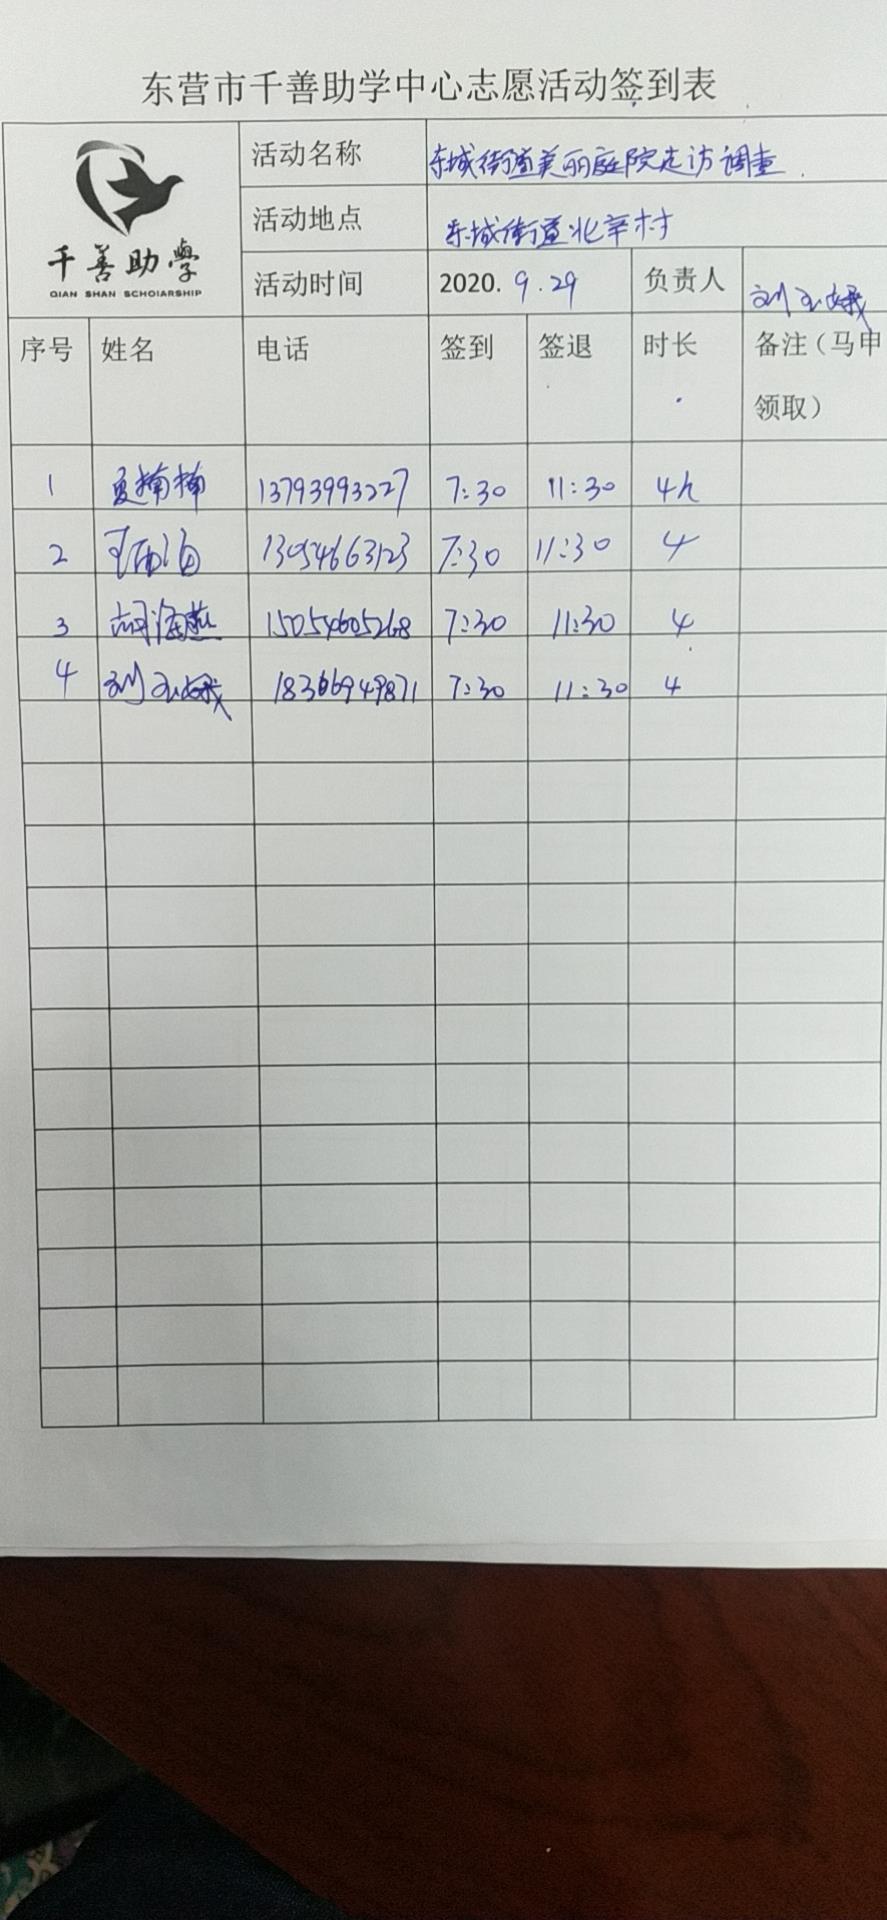 东营市千善助学中心志愿活动签到表
千善助學
QIAN SHAN SCHOIARSHIP
活动名称 东城街道美丽庭院走访调查
活动地点 东城街道北辛村
活动时间 2020. 9.29 负责人 刘玉娥
序号 姓名 电话 签到 签退 时长 备注（马甲
领取）
1 夏楠楠 13793993227 7:30 11:30 4h
2 13054663123 7:30 11:30 4
3 胡海燕 15054605268 7:30 11:30 4
4 刘玉娥 18366949871 7:30 11:30 4